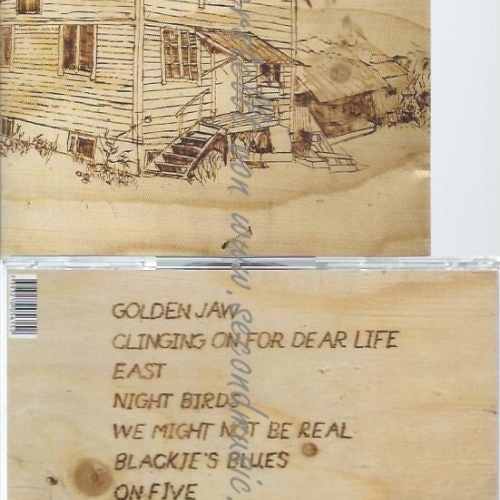 GOLDEN JAW
CLINGING ON FOR DEAR LIFE
EAST
NIGHT BIRDS
WE MIGHT NOT BE REAL
BLACKIE'S BLUES
ON FIVE
www.secondmusic.